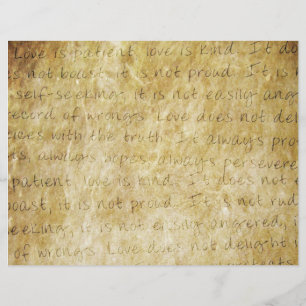 Love is patient, love is kind. It do
es not boast, it is not proud. It is n
self-seeking, it is not easily ang
record of wrongs. Love does not del
ices with the truth. It always pro
ts, always hopes, always persevere
patient, love is kind. It does not
boast, it is not proud. It is not rud
eeking, it is not easily angered, i
of wrongs. Love does not delight